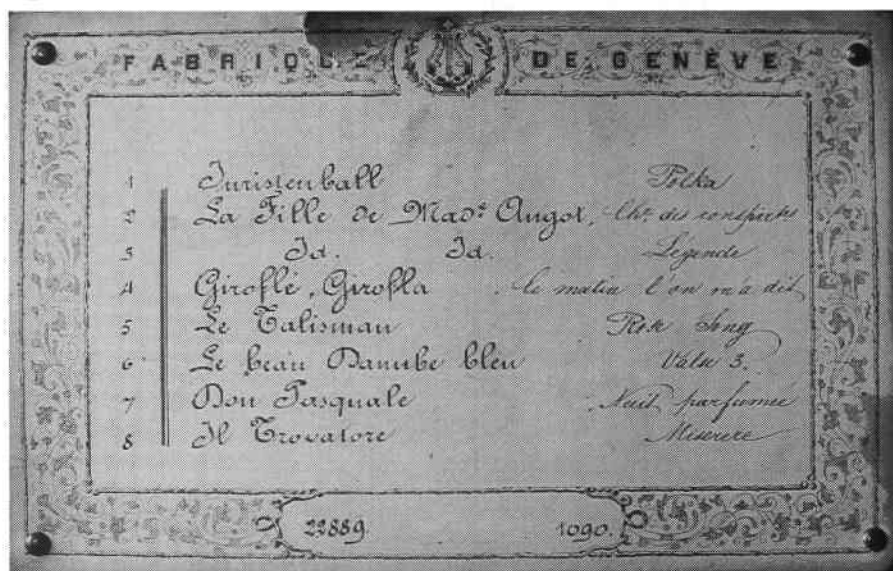 FABRIQUE DE GENÈVE
1 Juristenball Polka
2 La Fille de Mad.e Angot, Ch.r des conspirés
3 Id. Id. Légende
4 Giroflé, Girofla. Le matin l'on m'a dit
5 Le Talisman Rose Song
6 Le beau Danube bleu Valse 3.
7 Don Pasquale Nuit parfumée
8 Il Trovatore Miserere
22889 1090.